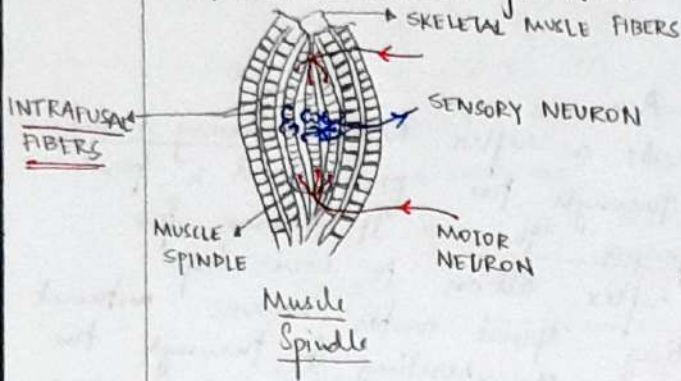 SKELETAL MUSLE FIBERS
INTRAFUSAL
FIBERS
SENSORY NEURON
MUSCLE
SPINDLE
MOTOR
NEURON
Muscle
Spindle